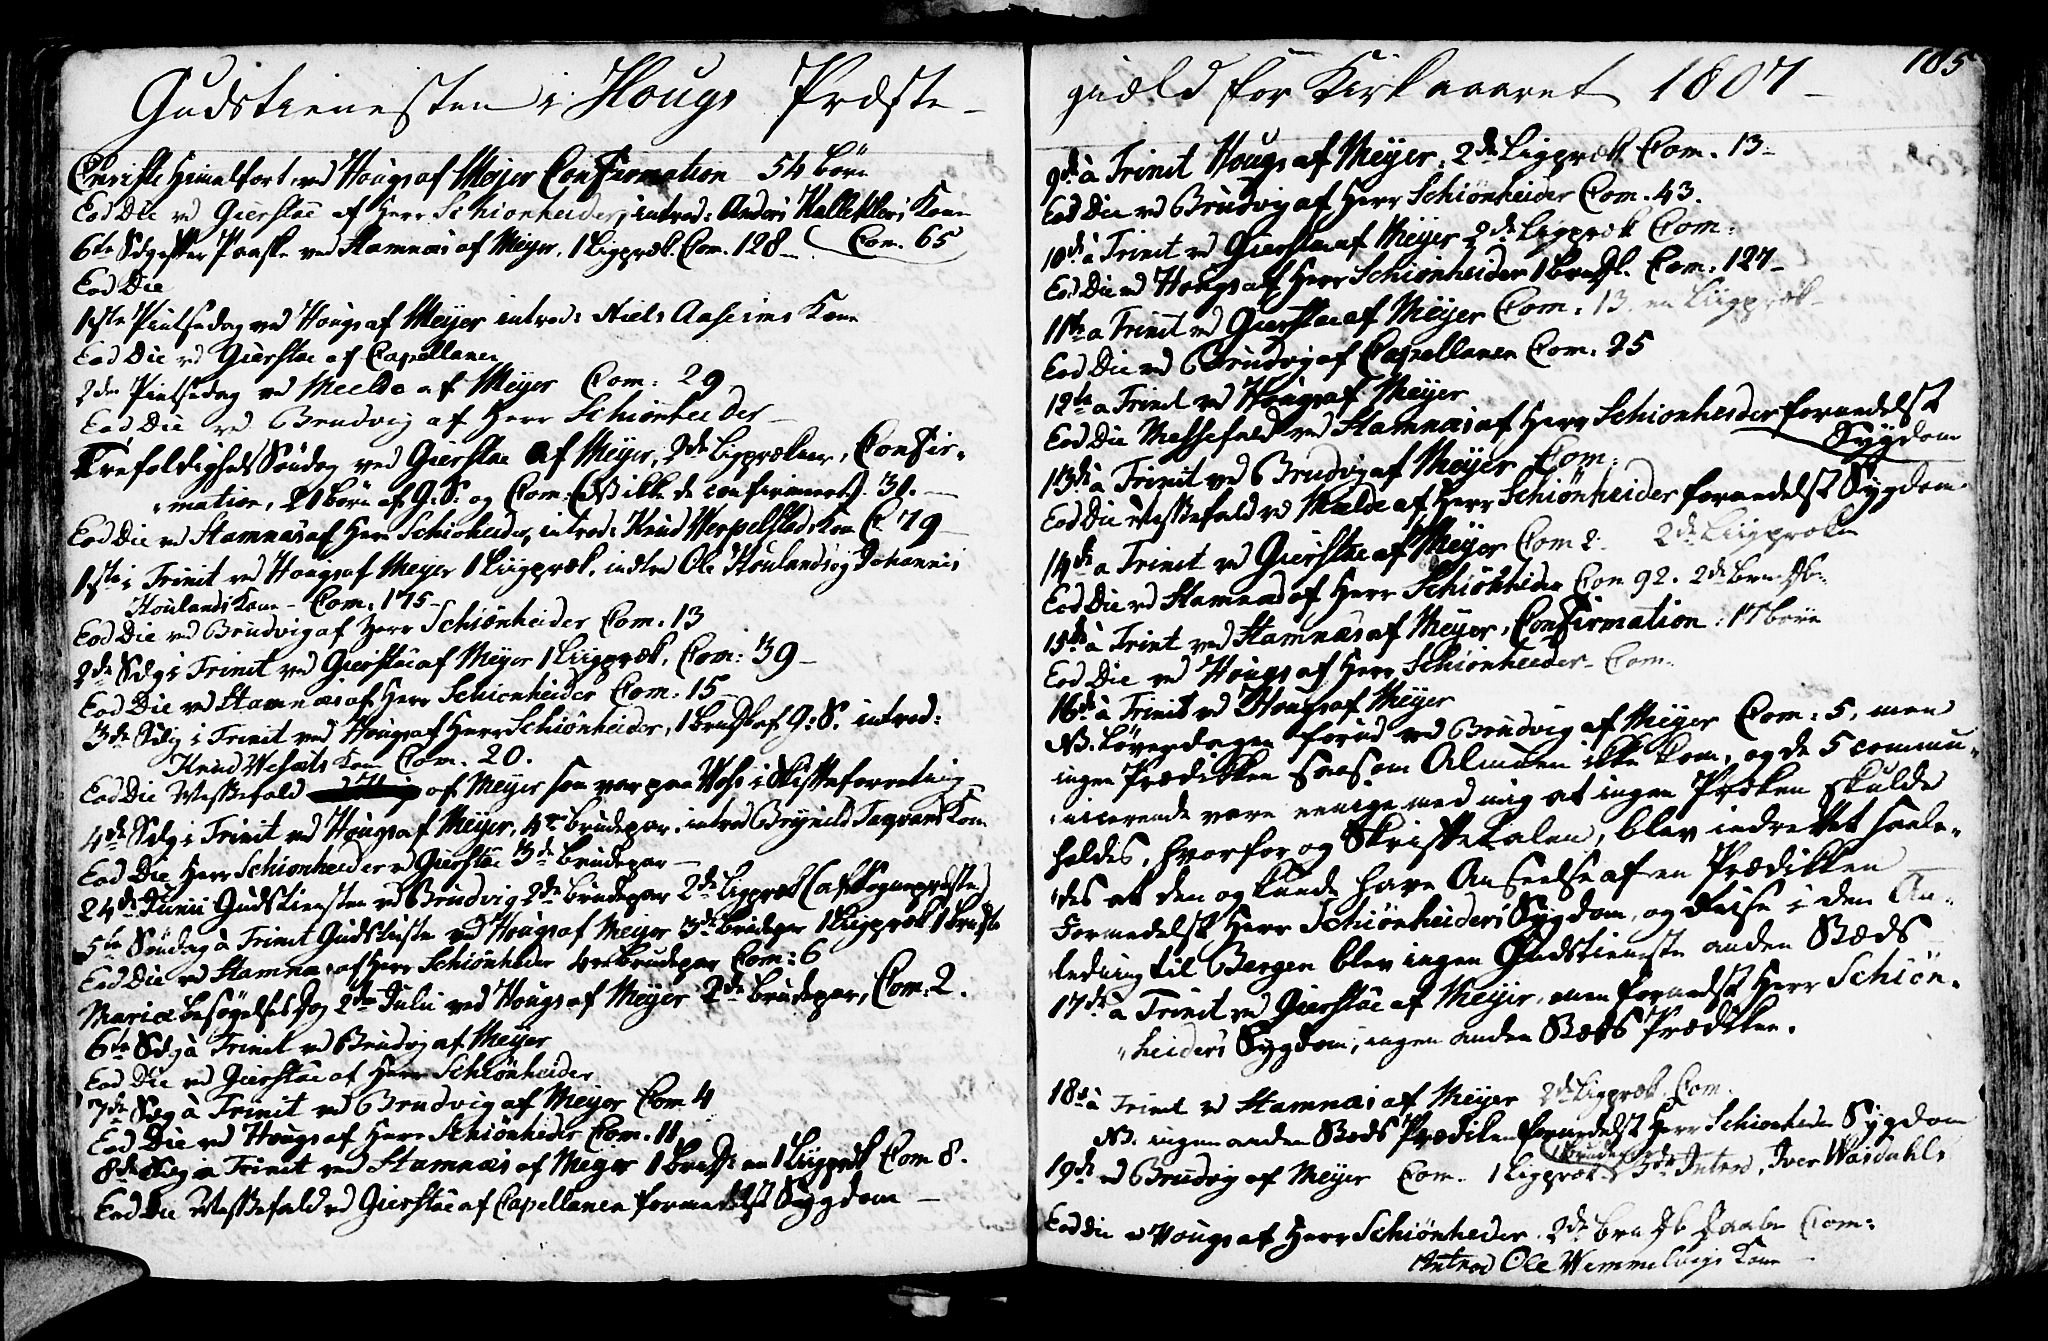 Gudstienesten i Hougs Præste-
Christi Himelfart, ved Hougs af Meyer Confirmation 54 børn
Eod Die vd Gierstae af Herr Schiønheider, introd: Anders Kallekleivs Kone
6te Sdg efter Paaske ved Stamnæs af Meyer, 1 Ligpræk. Com. 128 - Com. 65
Eod Die
1ste Pintsedag ved Hougs af Meyer introd: Niels Aaseims Kone
Eod Die vd Gierstae af Capellanen
2den Pintsedag vd Meelde af Meyer Com: 29
Eod Die vd Brudvig af Herr Schiønheider -
Trefoldigheds Søndag ved Gierstae af Meyer, 2de Ligprækner, Confir-
mation, 21 børn af G: S: og Com: 31. -
Eod Die vd Stamnæs af Herr Schiøheider, introd: Knud Kone C. 79 -
1ste i Trinit vd Hougs af Meyer 1 Liigpræk, indled Ole Houlands og Johannis
Houlands Kone - Com. 175 -
Eod Die vd Brudvig af Herr Schiønheider Com. 13
2de Sdg i Trinit vd Gierstae af Meyer 1 Liigpræk, Com: 39 -
Eod Die vd Stamnæs af Herr Schiønheider Com: 15
3de Sdg i Trinit ved Hougs af Herr Schiønheider, 1 Brudsk af G: S. introd:
Knud Kone Com. 20.
Eod Die Messefald af Meyer som var paa Voss i Skifteforretning
4de Sdg i Trinit vd Hougs af Meyer, 4re brudepar, introd Brynild Kone
Eod Die Herr Schiønheider vd Gierstae 3de brudepar -
24de Junii Gudstiensten vd Brudvig 2de brudepar 2de Ligpræk (af Sognepræsten)
5te Søndag à Trinit Gudstieste vd Hougs af Meyer 3de brudepar 1 Liigpræk 1
Eod Die vd Stamnæs af Herr Schiønheder 4re brudepar Com: 6
Mariæ Besøgelses Dag 2den Julii ved Hougs af Meyer 2de brudepar, Com: 2.
6te Sdg à Trinit vd Brudvig af Meyer
Eod Die vd Gierstae af Herr Schiønheider
7de Sdg à Trinit vd Brudvig af Meyer Com 4
Eod Die vd Hougs af Herr Schiønheider Com. 11
8de Sdg à Trinit ved Stamnæs af Meyer 1 en 1 Ligpræk Com 8.
Eod Die Messefald vd Gierstae af Capellanen formedelst Sygdom -
105
giæld for Kirkeaaret 1807 -
9de à Trinit Hougs af Meyer. 2de Ligpræk Com. 13 -
Eod Die vd Brudvig af Herr Schiønheider Com. 43.
10de à Trinit vd Gierstae af Meyer 2de Ligpræk Com:
Eod Die vd Hougs af Herr Schiønheider 1 Com. 127 -
11te a Trinit vd Gierstae af Meyer Com: 13. en Liigpræk -
Eod Die vd Brudvig af Capellanen Com: 25
12te a Trinit vd Hougs af Meyer
Eod Die Messefald vd Stamnæs af Herr Schiønheider formedelst
Sygdom
13de à Trinit ved Brudvig af Meyer Com:
Eod Die Messefald vd Mælde af Herr Schiønheider formedelst Sygdom
14de a Trinit vd Gierstae af Meyer Com 2. 2de Liigpræken
Eod Die vd Stamnæs af Herr Schiønheider Com 92. 2de
15de à Trinit ved Stamnæs af Meyer, Confirmation: 17 børn
Eod Die ved Hougs af Herr Schiønheider - Com.
16de à Trinit vd Hougs af Meyer
NB. Løverdagen forud vd Brudvig af Meyer Com: 5, men
ingen Prædikken saasom Almuen ikke kom, og de 5 commu-
nicerende vare eenige med mig at ingen Præken skulde
holdes, hvorfor og Skriftetalen, blev indrettet saale-
des at den og kunde have Anseelse af en Prædikken -
Formedelst Herr Schiønheiders Sygdom, og Reise i den An-
ledning til Bergen blev ingen Gudstieneste anden Stæds -
17de à Trinit vd Gierstae af Meyer, men formedelst Herr Schiøn-
heiders Sygdom, ingen anden Stæds Prædiken.
18de à Trinit vd Stamnæs af Meyer 2de Ligpræk Com.
NB. ingen anden Stæds Prædiken formedelst Herr Schiønheiders Sygdom
19de vd Brudvig af Meyer Com. 1 Ligpræk 1 Brudepar 3de Introd, Iver Wasdahls
Eod Die vd Hougs af Herr Schiønheder. 2de Com:
Introd Ole Kone -